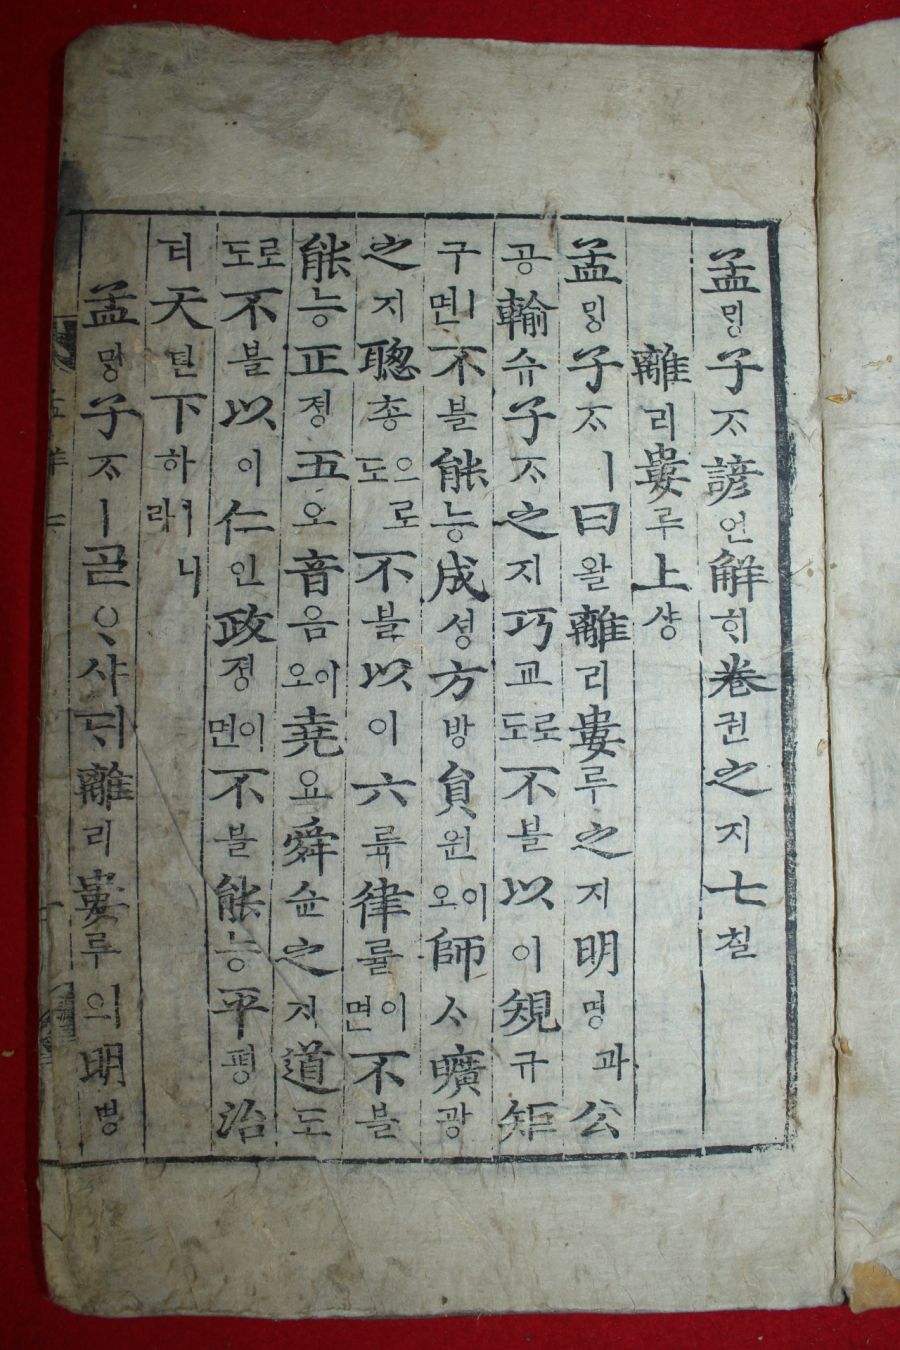 孟ᄆᆡᆼ子ᄌᆞ諺언解ᄒᆡ卷권之지七칠
離리婁루上샹
孟ᄆᆡᆼ子ᄌᆞㅣ曰왈離리婁루之지明명과公
공輸슈子ᄌᆞ之지巧교도로不블以이規규矩
구면이不블能능成셩方방員원오이師ᄉᆞ曠광
之지聰총도으로不블以이六륙律률면이不블
能능正졍五오音음오이堯요舜슌之지道도
도로不블以이仁인政졍면이不블能능平평治
티天텬下하라ㅣ니
孟ᄆᆡᆼ子ᄌᆞㅣᄀᆞᆯᄋᆞ샤ᄃᆡ離리婁루의明명